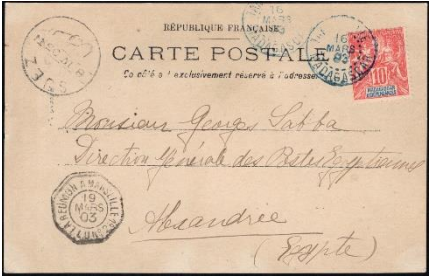 16
MARS
03
MADAGASCAR
RÉPUBLIQUE FRANÇAISE
CARTE POSTALE
Ce côté est exclusivement réservé à l'adresse
16
MARS
03
MADAGASCAR
10
SUEZ
Monsieur Georges Sabba
Direction Générale des Postes Egyptiennes
Alexandrie
(Egypte)
LA REUNION A MARSEILLE
19
MARS
03